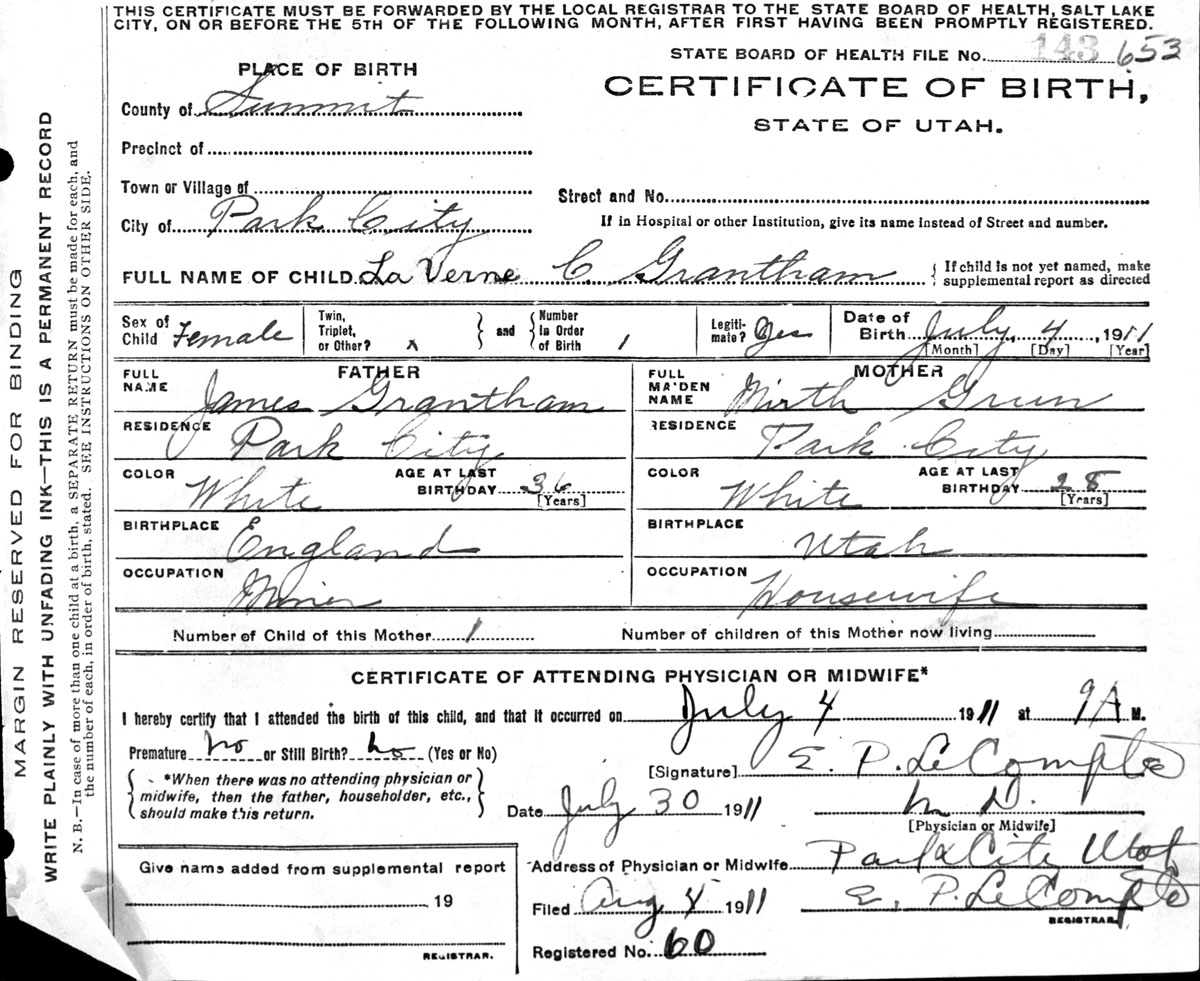 THIS CERTIFICATE MUST BE FORWARDED BY THE LOCAL REGISTRAR TO THE STATE BOARD OF HEALTH, SALT LAKE
CITY, ON OR BEFORE THE 5TH OF THE FOLLOWING MONTH, AFTER FIRST HAVING BEEN PROMPTLY REGISTERED.
STATE BOARD OF HEALTH FILE No. 143 653
PLACE OF BIRTH
CERTIFICATE OF BIRTH,
STATE OF UTAH.
County of Summit
Precinct of
Town or Village of
Street and No.
City of Park City
If in Hospital or other Institution, give its name instead of Street and number.
FULL NAME OF CHILD La Verne C Grantham { If child is not yet named, make
supplemental report as directed
Sex of Child Female
Twin, Triplet, or Other? x } and { Number in Order of Birth 1
Legitimate? Yes
Date of Birth July 4, 1911
[Month] [Day] [Year]
FATHER
FULL NAME James Grantham
RESIDENCE Park City
COLOR White AGE AT LAST BIRTHDAY 36
[Years]
BIRTHPLACE England
OCCUPATION Miner
MOTHER
FULL MAIDEN NAME Mirth Grun
RESIDENCE Park City
COLOR White AGE AT LAST BIRTHDAY 28
[Years]
BIRTHPLACE Utah
OCCUPATION Housewife
Number of Child of this Mother 1 Number of children of this Mother now living
CERTIFICATE OF ATTENDING PHYSICIAN OR MIDWIFE*
I hereby certify that I attended the birth of this child, and that it occurred on July 4 1911 at 9 A M.
Premature No or Still Birth? No (Yes or No)
[Signature] E. P. LeCompte
*When there was no attending physician or
midwife, then the father, householder, etc.,
should make this return.
Date July 30 1911 M D.
[Physician or Midwife]
Give name added from supplemental report
19
REGISTRAR.
Address of Physician or Midwife Park City Utah
Filed Aug 4 1911 E. P. LeCompte
REGISTRAR
Registered No. 60
MARGIN RESERVED FOR BINDING
WRITE PLAINLY WITH UNFADING INK—THIS IS A PERMANENT RECORD
N. B.—In case of more than one child at a birth, a SEPARATE RETURN must be made for each, and
the number of each, in order of birth, stated. SEE INSTRUCTIONS ON OTHER SIDE.